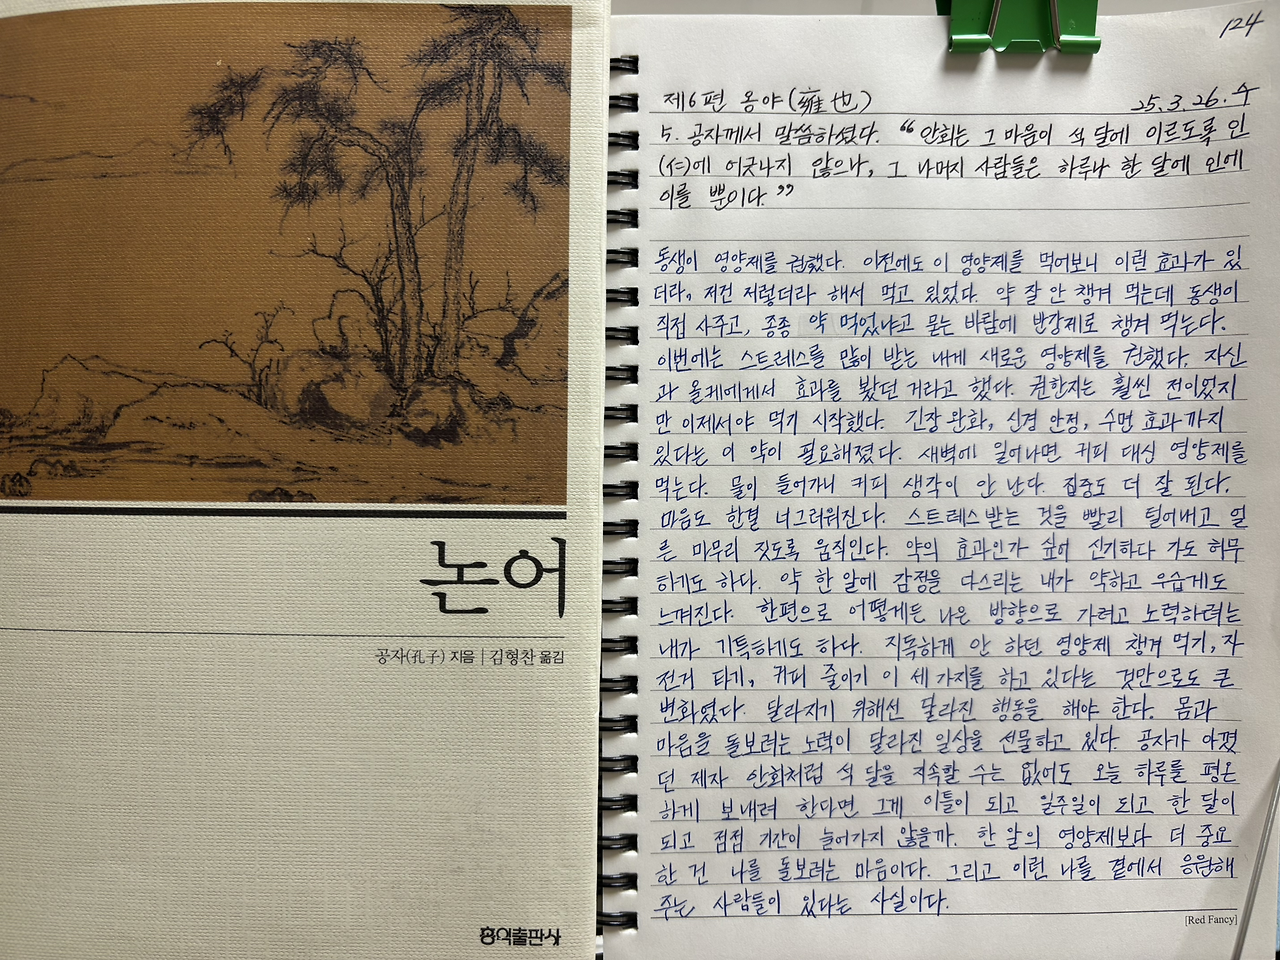 논어
공자(孔子) 지음 | 김형찬 옮김
홍익출판사
124
제6편 옹야(雍也)
25.3.26.수
5. 공자께서 말씀하셨다. "안회는 그 마음이 석 달에 이르도록 인
(仁)에 어긋나지 않으나, 그 나머지 사람들은 하루나 한 달에 인에
이를 뿐이다."
동생이 영양제를 권했다. 이전에도 이 영양제를 먹어보니 이런 효과가 있
더라, 저건 저렇더라 해서 먹고 있었다. 약 잘 안 챙겨 먹는데 동생이
직접 사주고, 종종 약 먹었냐고 묻는 바람에 반강제로 챙겨 먹는다.
이번에는 스트레스를 많이 받는 내게 새로운 영양제를 권했다. 자신
과 올케에게서 효과를 봤던 거라고 했다. 권한지는 훨씬 전이었지
만 이제서야 먹기 시작했다. 긴장 완화, 신경 안정, 수면 효과까지
있다는 이 약이 필요해졌다. 새벽에 일어나면 커피 대신 영양제를
먹는다. 물이 들어가니 커피 생각이 안 난다. 집중도 더 잘 된다.
마음도 한결 너그러워진다. 스트레스 받는 것을 빨리 털어내고 얼
른 마무리 짓도록 움직인다. 약의 효과인가 싶어 신기하다 가도 허무
하기도 하다. 약 한 알에 감정을 다스리는 내가 약하고 우습게도
느껴진다. 한편으로 어떻게든 나은 방향으로 가려고 노력하려는
내가 기특하기도 하다. 지독하게 안 하던 영양제 챙겨 먹기, 자
전거 타기, 커피 줄이기 이 세 가지를 하고 있다는 것만으로도 큰
변화였다. 달라지기 위해선 달라진 행동을 해야 한다. 몸과
마음을 돌보려는 노력이 달라진 일상을 선물하고 있다. 공자가 아꼈
던 제자 안회처럼 석 달을 지속할 수는 없어도 오늘 하루를 평온
하게 보내려 한다면 그게 이틀이 되고 일주일이 되고 한 달이
되고 점점 기간이 늘어가지 않을까. 한 알의 영양제보다 더 중요
한 건 나를 돌보려는 마음이다. 그리고 이런 나를 곁에서 응원해
주는 사람들이 있다는 사실이다.
[Red Fancy]